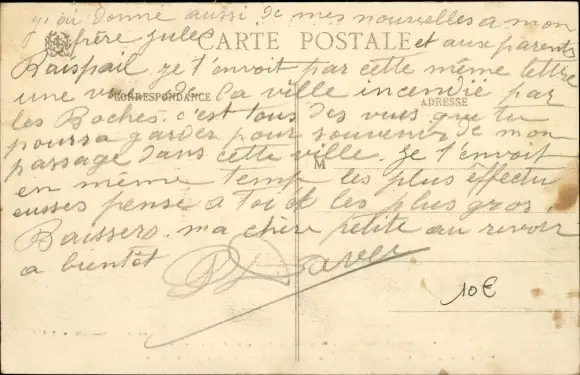 j'ai donné aussi de mes nouvelles a mon
frère jules et aux parents
CARTE POSTALE
Raispail je t'envoit par cette même lettre
une vue de la ville incendié par
CORRESPONDANCE
ADRESSE
les Boches. c'est tous des vues que tu
pourra garder pour souvenir de mon
passage dans cette ville. je t'envoit
M
en même temp les plus effectu
eusses pensé a toi & les plus gros
Baissers. ma chère petite au revoir
a bientôt
10€